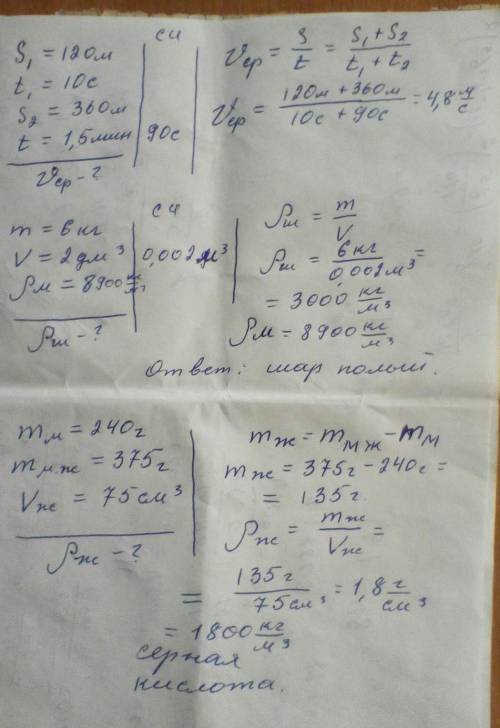 S₁ = 120м
t₁ = 10с
S₂ = 360м
t = 1,5мин
Vср - ?
СИ
90с
Vср = S/t = (S₁ + S₂)/(t₁ + t₂)
Vср = (120м + 360м)/(10с + 90с) = 4,8 м/с
m = 6 кг
V = 2 дм³
ρм = 8900 кг/м³
ρш - ?
СИ
0,002 м³
ρш = m/V
ρш = 6 кг/0,002 м³ =
= 3000 кг/м³
ρм = 8900 кг/м³
Ответ: шар полый.
mм = 240г
mмж = 375г
Vж = 75 см³
ρж - ?
mж = mмж - mм
mж = 375г - 240г =
= 135г
ρж = mж/Vж =
= 135г/75см³ = 1,8 г/см³
= 1800 кг/м³
серная
кислота.